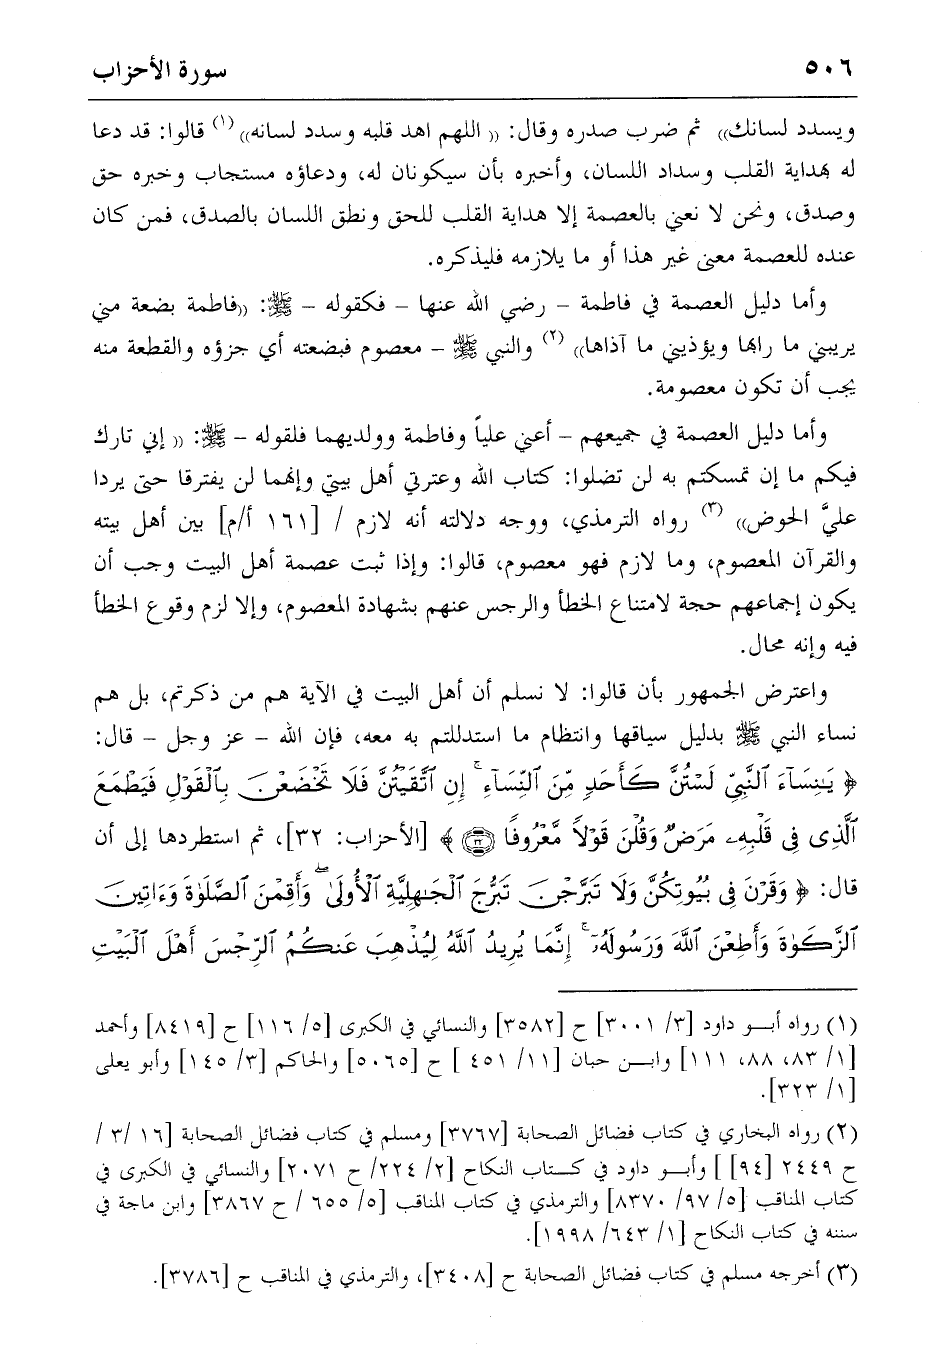 ٥٠٦ سورة الأحزاب
ويسدد لسانك)) ثم ضرب صدره وقال: (( اللهم اهد قلبه وسدد لسانه)) (١) قالوا: قد دعا
له بهداية القلب وسداد اللسان، وأخبره بأن سيكونان له، ودعاؤه مستجاب وخبره حق
وصدق، ونحن لا نعني بالعصمة إلا هداية القلب للحق ونطق اللسان بالصدق، فمن كان
عنده للعصمة معنى غير هذا أو ما يلازمه فليذكره.
وأما دليل العصمة في فاطمة - رضي الله عنها - فكقوله - ﷺ: ((فاطمة بضعة مني
يريبني ما رابها ويؤذيني ما آذاها)) (٢) والنبي ﷺ - معصوم فبضعته أي جزؤه والقطعة منه
يجب أن تكون معصومة.
وأما دليل العصمة في جميعهم - أعني علياً وفاطمة وولديهما فلقوله - ﷺ: (( إني تارك
فيكم ما إن تمسكتم به لن تضلوا: كتاب الله وعترتي أهل بيتي وإنهما لن يفترقا حتى يردا
عليَّ الحوض)) (٣) رواه الترمذي، ووجه دلالته أنه لازم / [١٦١ أ/م] بين أهل بيته
والقرآن المعصوم، وما لازم فهو معصوم، قالوا: وإذا ثبت عصمة أهل البيت وجب أن
يكون إجماعهم حجة لامتناع الخطأ والرجس عنهم بشهادة المعصوم، وإلا لزم وقوع الخطأ
فيه وإنه محال.
واعترض الجمهور بأن قالوا: لا نسلم أن أهل البيت في الآية هم من ذكرتم، بل هم
نساء النبي ﷺ بدليل سياقها وانتظام ما استدللتم به معه، فإن الله - عز وجل - قال:
﴿ يَٰنِسَآءَ ٱلنَّبِيِّ لَسْتُنَّ كَأَحَدٍ مِّنَ ٱلنِّسَآءِ ۚ إِنِ ٱتَّقَيْتُنَّ فَلَا تَخْضَعْنَ بِٱلْقَوْلِ فَيَطْمَعَ
ٱلَّذِى فِى قَلْبِهِۦ مَرَضٌ وَقُلْنَ قَوْلًا مَّعْرُوفًا ٣٢ ﴾ [الأحزاب: ٣٢]، ثم استطردها إلى أن
قال: ﴿ وَقَرْنَ فِى بُيُوتِكُنَّ وَلَا تَبَرَّجْنَ تَبَرُّجَ ٱلْجَٰهِلِيَّةِ ٱلْأُولَىٰ ۖ وَأَقِمْنَ ٱلصَّلَوٰةَ وَءَاتِينَ
ٱلزَّكَوٰةَ وَأَطِعْنَ ٱللَّهَ وَرَسُولَهُۥٓ ۚ إِنَّمَا يُرِيدُ ٱللَّهُ لِيُذْهِبَ عَنكُمُ ٱلرِّجْسَ أَهْلَ ٱلْبَيْتِ
(١) رواه أبو داود [٣/ ٣٠٠١] ح [٣٥٨٢] والنسائي في الكبرى [٥/ ١١٦] ح [٨٤١٩] وأحمد
[١/ ٨٣، ٨٨، ١١١] وابن حبان [١١/ ٤٥١ ] ح [٥٠٦٥] والحاكم [٣/ ١٤٥] وأبو يعلى
[١/ ٣٢٣].
(٢) رواه البخاري في كتاب فضائل الصحابة [٣٧٦٧] ومسلم في كتاب فضائل الصحابة [١٦ /٣ /
ح ٢٤٤٩ [٩٤] ] وأبو داود في كتاب النكاح [٢/ ٢٢٤/ ح ٢٠٧١] والنسائي في الكبرى في
كتاب المناقب [٥/ ٩٧/ ٨٣٧٠] والترمذي في كتاب المناقب [٥/ ٦٥٥ / ح ٣٨٦٧] وابن ماجة في
سننه في كتاب النكاح [١/ ٦٤٣/ ١٩٩٨].
(٣) أخرجه مسلم في كتاب فضائل الصحابة ح [٣٤٠٨]، والترمذي في المناقب ح [٣٧٨٦].